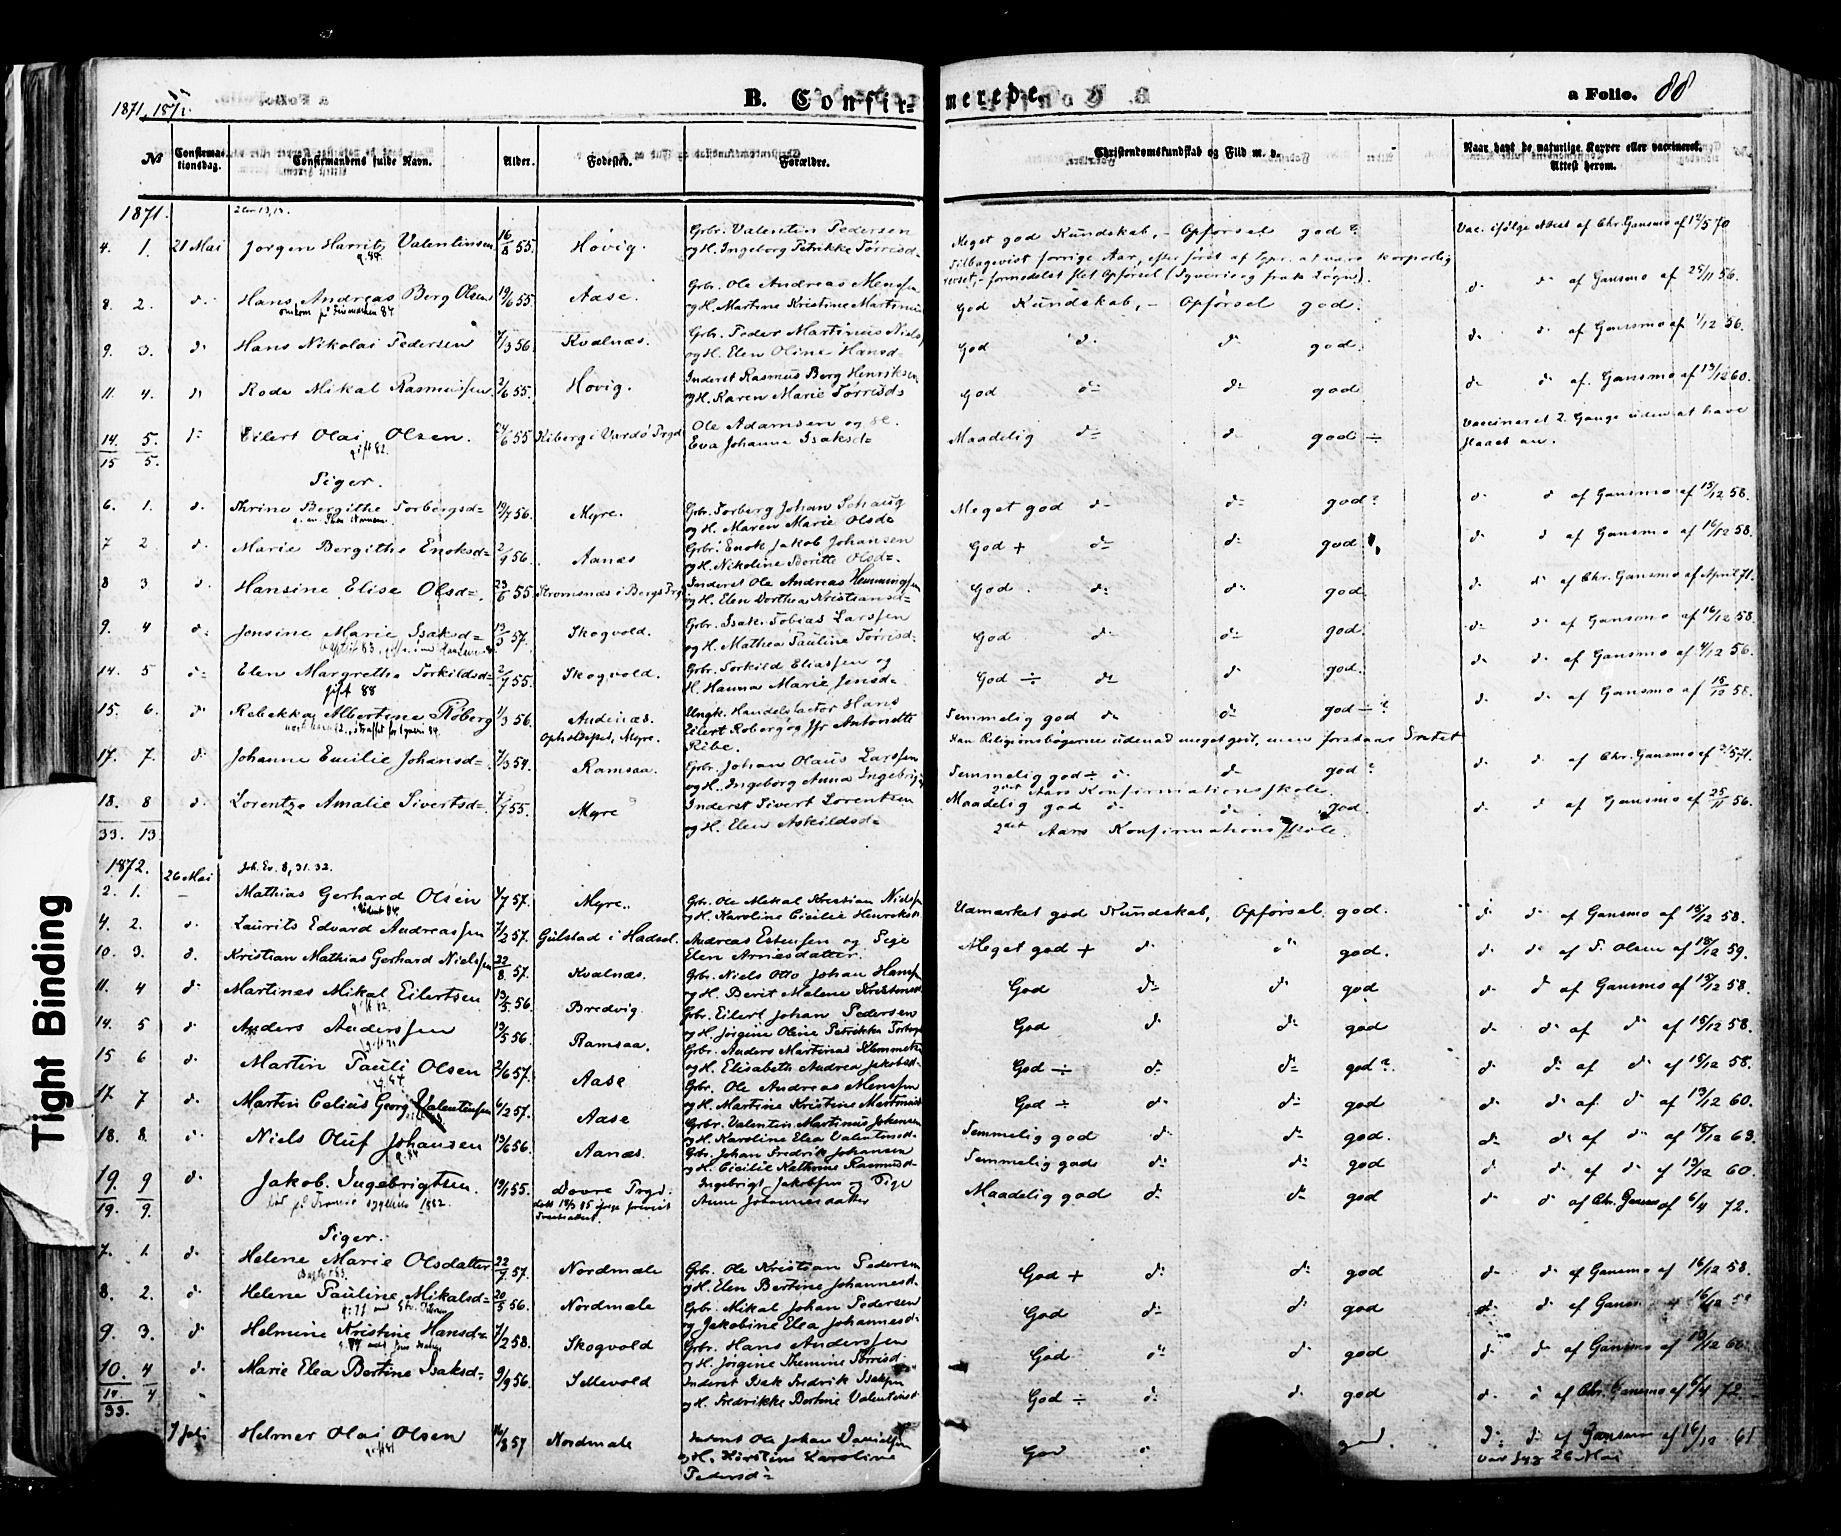 1871, 1872.
B. Confirmerede.
a Folio. 88
Tight Binding
No
Confirmationsdag.
Confirmandens fulde Navn.
Alder.
Fødested.
Forældre.
Christendomskundskab og Flid m. v.
Naar havt de naturlige Kopper eller vaccineret. Attest herom.
1871.
4. 1. 21 Mai Jørgen Harrits Valentinsen 16/8 55. Høvig. Grbr. Valentin Pedersen og H. Ingeborg Petrikke Tørrisd. Meget god Kundskab, – Opførsel god? Vac. ifølge Attest af Chr. Gansmo af 12/5 70
8. 2. d. Hans Andreas Berg Olsen 19/6 55. Aase. Grbr. Ole Andreas Menssen og H. Martine Kristine God Kundskab, – Opførsel god. d. d. af Gansmo af 25/11 56.
9. 3. d. Hans Nikolai Pedersen 7/3 56. Kvalnæs. Grbr. Peder Martinus Niels og H. Elen Oline Hansd. God d. d. god. d. d. af Gansmo af 1/12 56.
11. 4. d. Rode Mikal Rasmussen 2/6 55. Høvig. Inderst Rasmus Berg Henriksen og H. Karen Marie Tørrisd. God d. d. god d. d. af Gansmo af 13/12 60.
14. 5. d. Eilert Olai Olsen. 55 Kiberg i Vardø Prgd. Ole Adamsen og Eva Johanna Isaksd. Maadelig d. d. god ÷ Vaccineret 2 Gange uden at have slaaet an.
gift 82.
15 5.
Piger.
6. 1. d. Thrine Bergithe Torbergsd. 19/4 56. Myre. Grbr. Torberg Johan Schaug og H. Maren Marie Olsd. Meget god d. d. god? d. d. af Gansmo af 15/12 58.
7 2 d. Marie Bergithe Enoksd. 2/9 56. Aanæs Grbr. Enok Jakob Johansen og H. Nikoline Dorthe Olsd. God + d. d. god d. d. af Gansmo af 16/12 58.
8 3 d. Hansine Elise Olsd. 23/6 55. Strømsnæs i Bergs Prgd. Inderst Ole Andreas Henningsen og H. Elen Dorthea Kristiansd. God. d. d. god d. d. af Chr. Gansmo af April 71.
9. 4 d. Jensine Marie Isaksd. 57. Skogvold. Grbr. Isak Tobias Larssen og H. Mathea Pauline Tørrisd. God d. d. god. d. d. af Gansmo af 16/12 58.
14. 5 d. Elen Margrethe Torkildsd. 2/7 55. Skogvold. Grbr. Torkild Eliassen og H. Hanna Marie Jensd. God ÷ d. d. god. d. d. af Gansmo af 4/12 56.
gift 88
15. 6. d. Rebekka Albertine Røberg 1/3 56. Andenæs. Opholdssted, Myre. Ungk. Handelsfactor Hans Eilert Røberg og Jfr Antonette Ribe. Temmelig god d. d. god ÷? d. d. af Gansmo af 15/12 58.
Kan Religionsbøgerne udenad meget godt, men forstaar
17. 7. d. Johanne Emilie Johansd. 7/3 54. Ramsaa. Grbr. Johan Olaus Larssen og H. Ingeborg Anna Temmelig god ÷ d. d. god? d. d. af Chr. Gansmo af 71.
2det Aars Konfirmationsskole.
18. 8 d. Lorentze Amalie Sivertsd. 7/7 55. Myre Inderst Sivert Lorentsen og H. Elen Askildsd. Maadelig god d. d. god. d. d. af Gansmo af 25/11 56.
2det Aars Konfirmationsskole.
33. 13
1872. Joh. Ev. 8, 31. 32.
26 Mai
2. 1. Mathias Gerhard Olsen 4/7 57. Myre. Grbr. Ole Mikal Kristian Niels og H. Karoline Cicilie Udmærket god Kundskab, Opførsel god. d. d. af Gansmo af 15/12 58.
4. 2. d. Laurits Edvard Andreassen 7/2 57. Gulstad i Hadsel. Andreas Estensen og Pige Elen Arnesdatter. Meget god + d. d. god. d. d. af P. Olsen af 18/12 59.
10. 3. d. Kristian Mathias Gerhard Nielssen 22/8 57. Kvalnæs. Grbr. Niels Otto Johan Hans og H. Berit Malene God d. d. god d. d. af Gansmo af 15/12 58.
11. 4 d. Martines Mikal Eilertsen 19/5 56 Bredvig Grbr. Eilert Johan Pedersen og H. Jørgine Oline Petrikke God d. d. god d. d. af d. af 15/12 58.
14. 5 d. Anders Anderssen 13/5 56. Ramsaa. Grbr. Anders Martinus og H. Elisabeth Andrea Jakobsd. God ÷ d. d. god?. d. d. af d. af 15/12 58.
15 6 d. Martin Pauli Olsen 2/6 57. Aase Grbr. Ole Andreas Menssen og H. Martine Kristine God ÷ d. d. god d. d. af d. af 13/12 60.
17. 7 d. Martin Celius Georg Valentinsen 6/2 57. Aase Grbr. Valentin Martinus Johansen og H. Karoline Elea Valentinsd. Temmelig god d. d. god. d. d. af d. af 18/12 63.
18. 8. d. Niels Oluf Johansen 13/6 56. Aanæs. Grbr. Johan Fredrik Johansen og H. Cicilie Kathrine Rasmusd. Temmelig god d. d. god d. d. af d. af 13/12 60.
19. 9 d. Jakob Ingebrigtsen. 19/1 55. Dovre Prgd. Ingebrigt Jakobsen og Pige Anne Johannesdatter Maadelig god d. d. god d. d. af Chr. Gansmo af 6/4 72.
19. 9.
Piger.
7. 1. d. Helene Marie Olsdatter 22/9 57. Nordmæle Grbr. Ole Kristian Pedersen og H. Elen Bertine Johannesd. God + d. d. god d. d. af Gansmo af 16/12 58.
8. 2. d. Helene Pauline Mikalsd. 20/5 56. Nordmæle Grbr. Mikal Johan Pedersen og Jakobine Elea Johannesd. God d. d. god d. d. af 16/12
9. 3. d. Helmine Kristine Hansd. 7/2 58. Skogvold Grbr. Hans Anderssen og H. Jørgine Themine Tørrisd. God d. d. god d. d. af Gansmo af 13/12 60.
10. 4 d. Marie Elea Bertine Isaksd. 9/9 56. Sellevold Inderst Isak Fredrik Isaksen og H. Fredrikke Bertine Valentinsd. God ÷ d. d. god d. d. af Chr. Gansmo af 6/4 72.
10 4
33.
7 Juli Helmer Olai Olsen 16/8 57 Nordmæle Inderst Ole Johan Danielsen og H. Kirstine Karoline Pedersd. God d. god. d. d. af Gansmo af 16/12 61
var syg 26 Mai